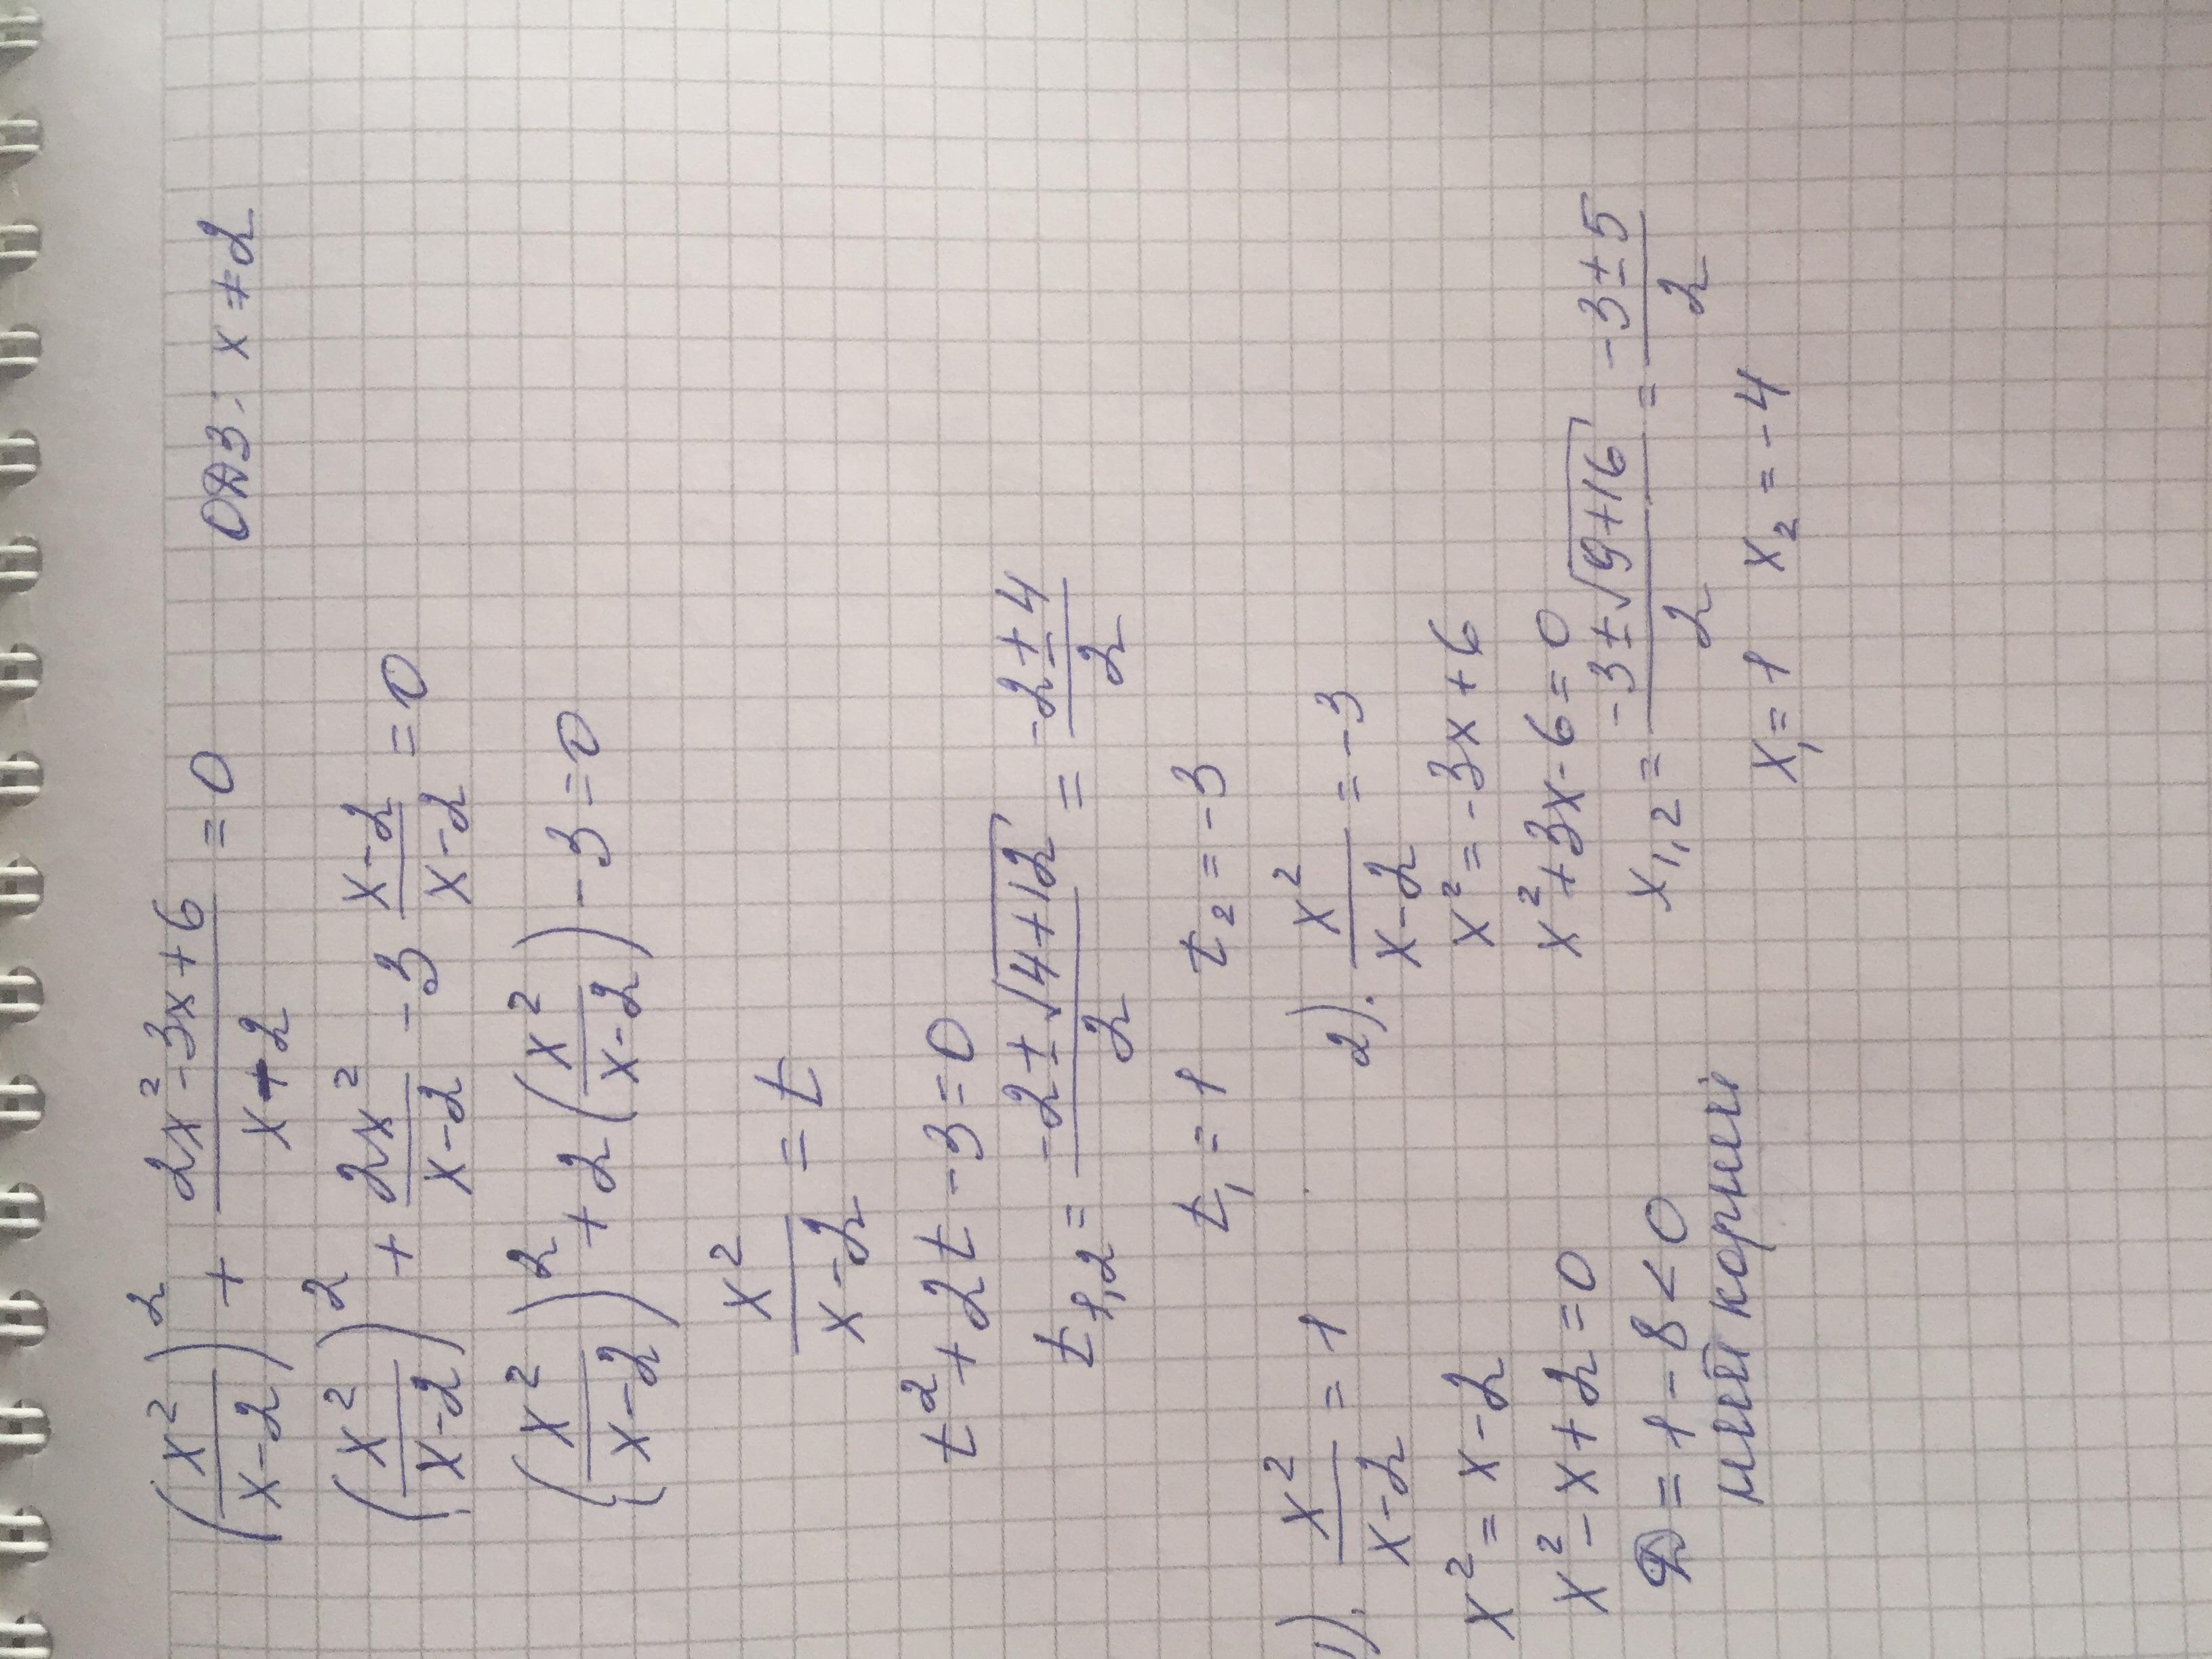 (x²/(x-2))² + (2x²-3x+6)/(x-2) = 0 ОДЗ: x ≠ 2
(x²/(x-2))² + 2x²/(x-2) - 3 (x-2)/(x-2) = 0
(x²/(x-2))² + 2(x²/(x-2)) - 3 = 0
x²/(x-2) = t
t² + 2t - 3 = 0
t₁,₂ = (-2 ± √(4+12))/2 = (-2 ± 4)/2
t₁ = 1 t₂ = -3
1). x²/(x-2) = 1
x² = x - 2
x² - x + 2 = 0
D = 1 - 8 < 0
нет корней
2). x²/(x-2) = -3
x² = -3x + 6
x² + 3x - 6 = 0
x₁,₂ = (-3 ± √(9+16))/2 = (-3 ± 5)/2
x₁ = 1 x₂ = -4